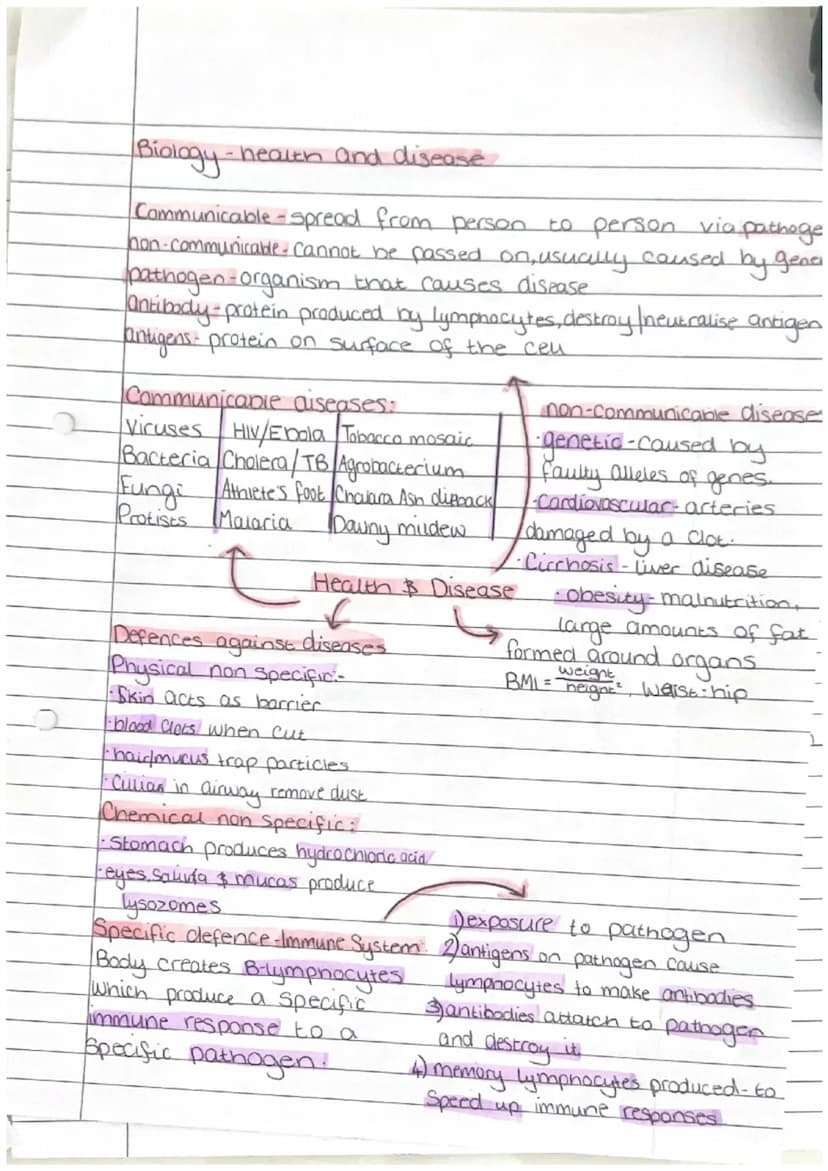 Biology - health and disease
Communicable - spread from person to person via pathoge
non-communicable - cannot be passed on, usually caused by gene
pathogen - organism that causes disease
antibody - protein produced by lymphocytes, destroy/neutralise antigen
antigens - protein on surface of the cell
Communicable diseases:
Viruses | HIV/Ebola | Tobacco mosaic
Bacteria | Cholera/TB | Agrobacterium
Fungi | Athlete's foot | Chalara Ash dieback
Protists | Malaria | Dawny mildew
non-communicable disease
· genetic - caused by
faulty alleles of genes.
· cardiovascular - arteries
damaged by a clot.
· Cirrhosis - liver disease
· obesity - malnutrition,
large amounts of fat
formed around organs
BMI = weight/height², waist:hip
Health & Disease
Defences against diseases
Physical non specific:-
· Skin acts as barrier
· blood clots when cut
· hair/mucus trap particles
· Cillian in airway remove dust
Chemical non specific:
· Stomach produces hydrochloric acid
· eyes, saliva & mucas produce
lysozomes
Specific defence - Immune System:
Body creates B-lymphocytes
which produce a specific
immune response to a
specific pathogen.
1) exposure to pathogen
2) antigens on pathogen cause
lymphocytes to make antibodies
3) antibodies attatch to pathogen
and destroy it
4) memory lymphocytes produced - to
speed up immune responses